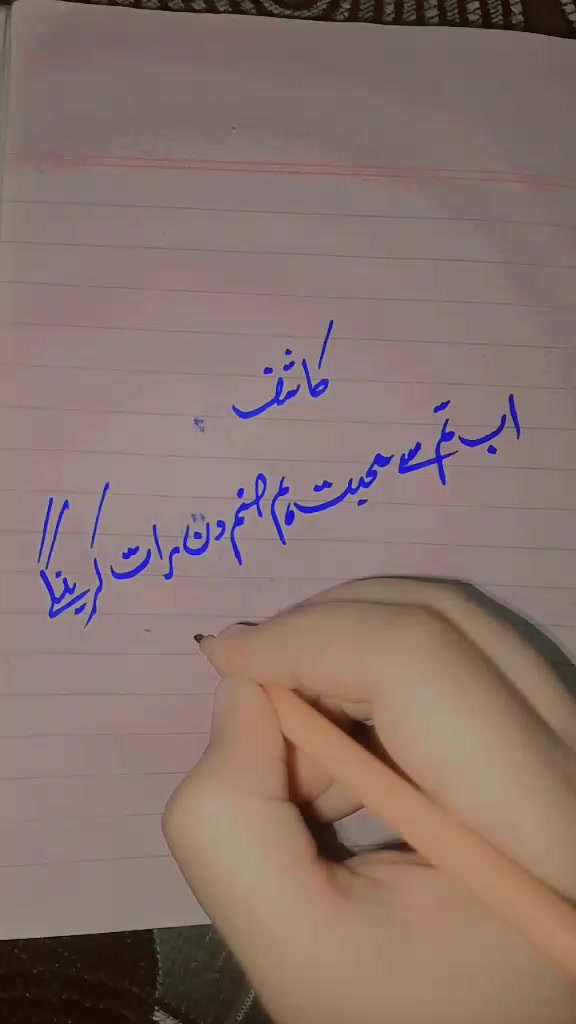 کاشف
اب تم سے محبت ہم صنم دن رات کرینگے